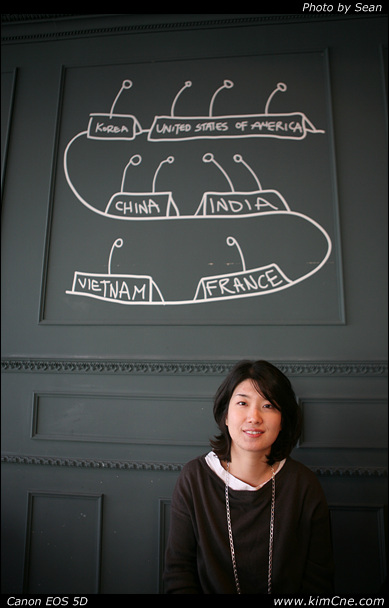 Photo by Sean
KOREA
UNITED STATES OF AMERICA
CHINA
INDIA
VIETNAM
FRANCE
Canon EOS 5D
www.kimCne.com